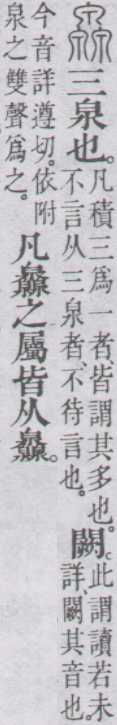 灥三泉也。凡積三爲一者皆謂其多也。不言从三泉者、不待言也。闕。此謂讀若未詳、闕其音也。
今音詳遵切。依附泉之雙聲爲之。凡灥之屬皆从灥。